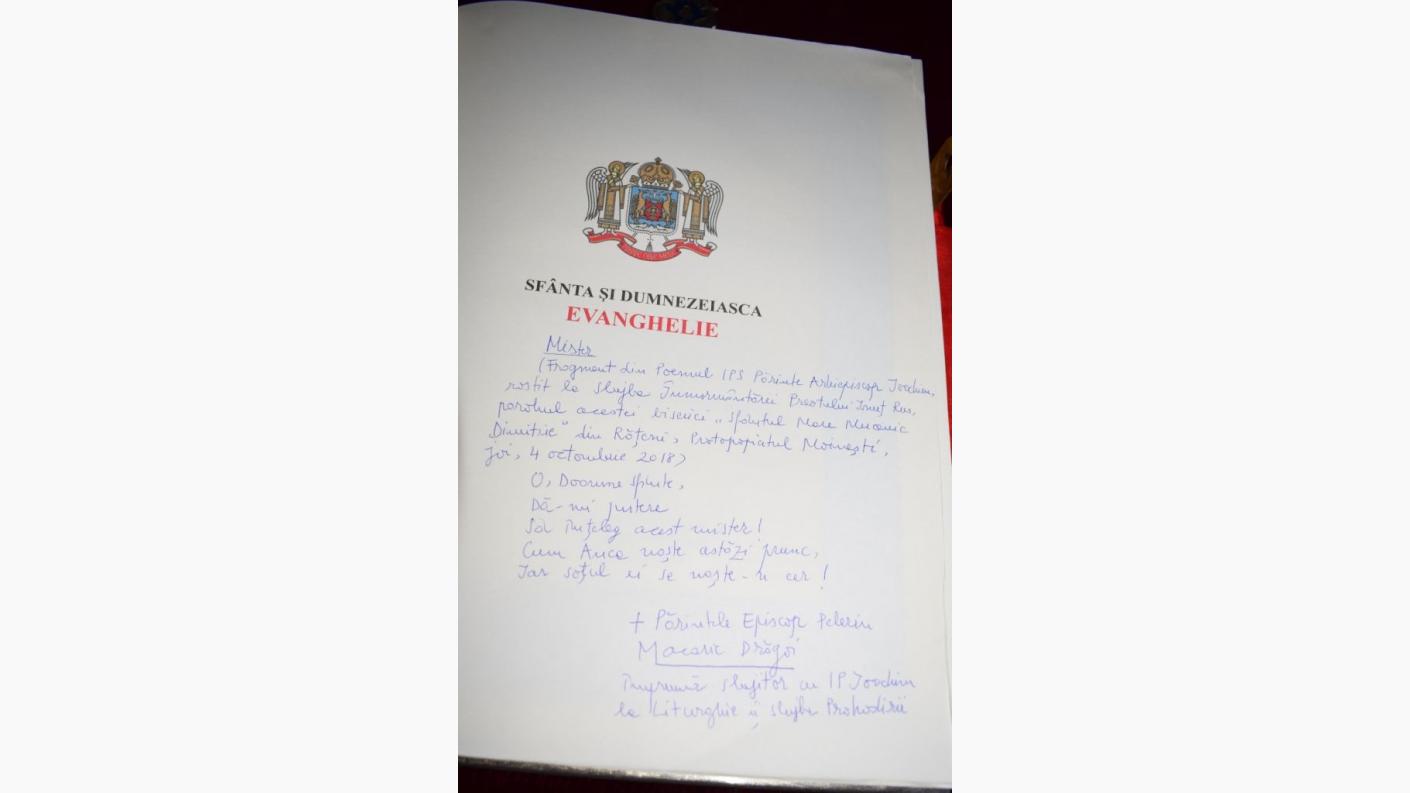 SFÂNTA ȘI DUMNEZEIASCA
EVANGHELIE
Mister
(Fragment din Poemul IPS Părinte Arhiepiscop Ioachim,
rostit la slujba Înmormântării Preotului Ionuț Rus,
parohul acestei biserici „Sfântul Mare Mucenic
Dimitrie" din Rățeni, Protopopiatul Moinești,
joi, 4 octombrie 2018)
O, Doamne sfinte,
Dă-mi putere
Să înțeleg acest mister!
Cum Anca naște astăzi prunc,
Iar soțul ei se naște-n cer!
+ Părintele Episcop Pelerin
Macarie Drăgoi
Împreună slujitor cu IP Ioachim
la Liturghie și slujba Prohodirii